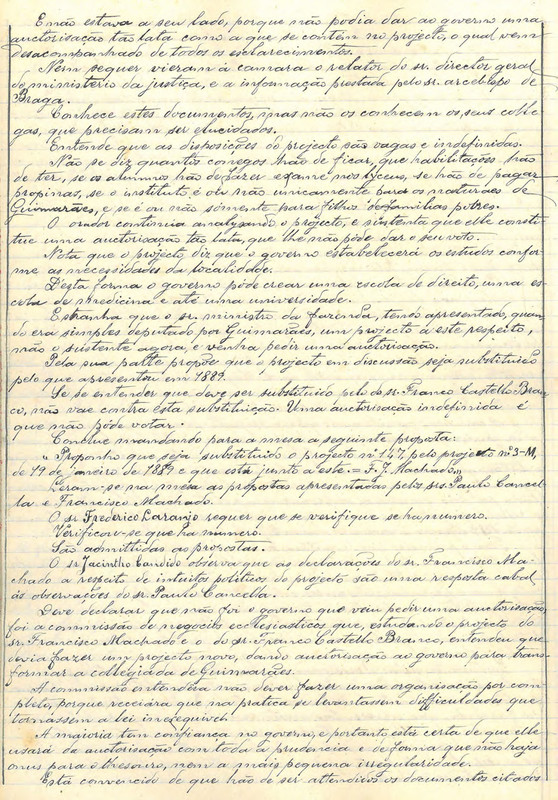 E não estava a seu lado, porque não podia dar ao governo uma
auctorisação tão lata como a que se contém no projecto, o qual vem
desacompanhado de todos os esclarecimentos.
Nem sequer vieram á camara o relator do sr. director geral
do ministerio da justiça, e a informação prestada pelo sr. arcebispo de
Braga.
Conhece estes documentos, mas não os conhecem os seus colle-
gas, que precisam ser elucidados.
Entende que as disposições do projecto são vagas e indefinidas.
Não se diz quantos conegos hão de ficar, que habilitações hão
de ter, se os alumnos hão de fazer exame nos lyceus, se hão de pagar
propinas, se o instituto é ou não unicamente para os naturaes de
Guimarães, e se é ou não sómente para filhos de familias pobres.
O orador continúa analysando o projecto, e sustenta que elle consti-
tue uma auctorisação tão lata, que lhe não póde dar o seu voto.
Nota que o projecto diz que o governo estabelecerá os estudos confor-
me as necessidades da localidade.
D'esta fórma o governo póde crear uma escola de direito, uma es-
cola de medicina e até uma universidade.
Extranha que o sr. ministro da fazenda, tendo apresentado, quan-
do era simples deputado por Guimarães, um projecto a este respeito,
não o sustente agora, e venha pedir uma auctorisação.
Pela sua parte propõe que o projecto em discussão seja substituido
pelo que apresentou em 1889.
Se se entender que deve ser substituido pelo do sr. Franco Castello Bran-
co, não vae contra esta substituição. Uma auctorisação indefinida é
que não póde votar.
Conclue mandando para a mesa a seguinte proposta:
"Proponho que seja substituido o projecto nº 147, pelo projecto nº 3-M,
de 19 de janeiro de 1889 e que está junto a este. = F. J. Machado,,
Leram-se na mesa as propostas apresentadas pelos srs. Paulo Cancel-
la e Francisco Machado.
O sr Frederico Laranjo requer que se verifique se ha numero.
Verificou-se que ha numero.
São admittidas as propostas.
O sr Jacintho Candido observa que as declarações do sr. Francisco Ma-
chado a respeito de intuitos politicos do projecto são uma resposta cabal
ás observações do sr. Paulo Cancella.
Deve declarar que não foi o governo que veiu pedir uma auctorisação,
foi a commissão de negocios ecclesiasticos que, estudando o projecto do
sr. Francisco Machado e o do sr. Franco Castello Branco, entendeu que
devia fazer um projecto novo, dando auctorisação ao governo para trans-
formar a collegiada de Guimarães.
A commissão entendêra não dever fazer uma organisação por com-
pleto, porque receiára que na pratica se levantassem difficuldades que
tornassem a lei inexequivel.
A maioria tem confiança no governo, e portanto está certa de que elle
usará da auctorisação com toda a prudencia e de fórma que não haja
onus para o thesouro, nem a mais pequena irregularidade.
Está convencido de que hão de ser attendidos os documentos citados